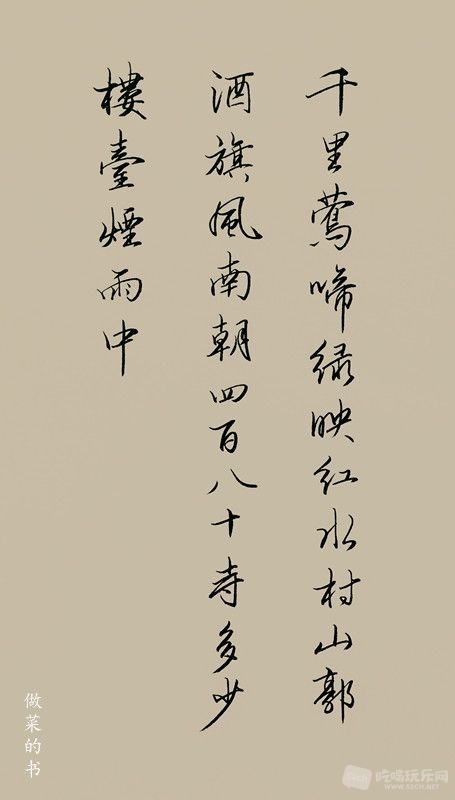 千里鶯啼绿映红水村山郭
酒旗風南朝四百八十寺多少
樓臺煙雨中
做菜的书
吃喝玩乐网
WWW.52CH.NET